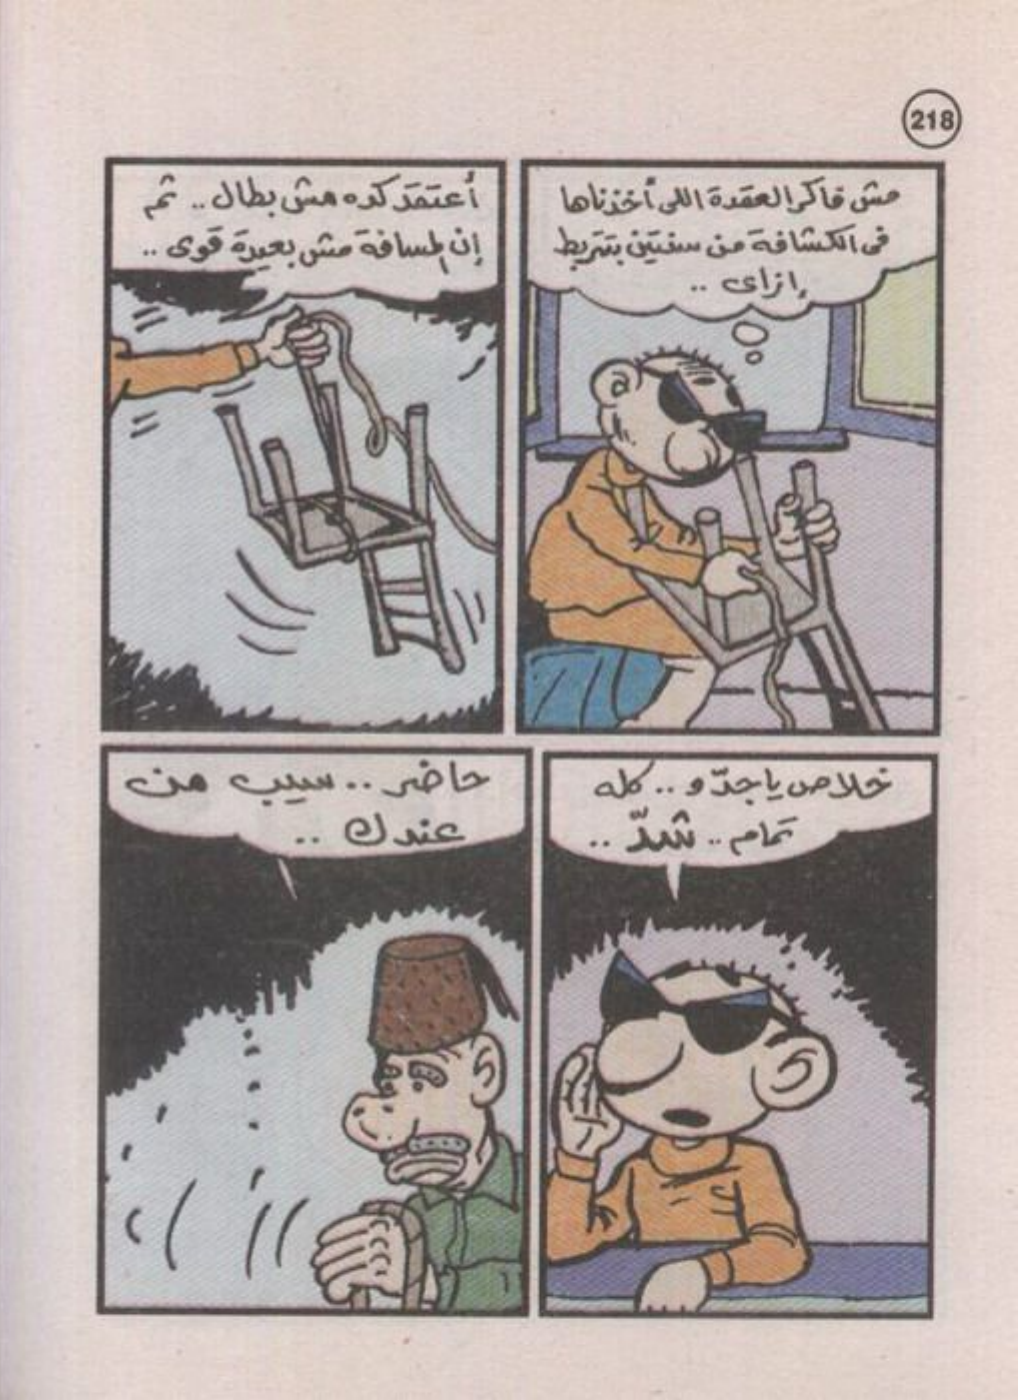 218
مش فاكر العقدة اللى أخذناها
فى الكشافة من سنتين بتتربط
إزاى ..
أعتقد كده مش بطال .. ثم
إن المسافة مش بعيدة قوى ..
خلاص يا جدّو .. كله
تمام .. شدّ ..
حاضر .. سيب من
عندك ..